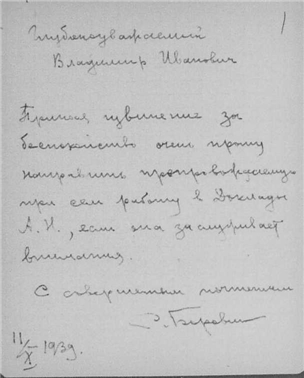 1
Глубокоуважаемый
Владимир Иванович
Принося извинение за
беспокойство очень прошу
направить препровождаемую
при сем работу в Доклады
А.Н., если она заслуживает
внимания.
С совершенным почтением
11/X 1939.